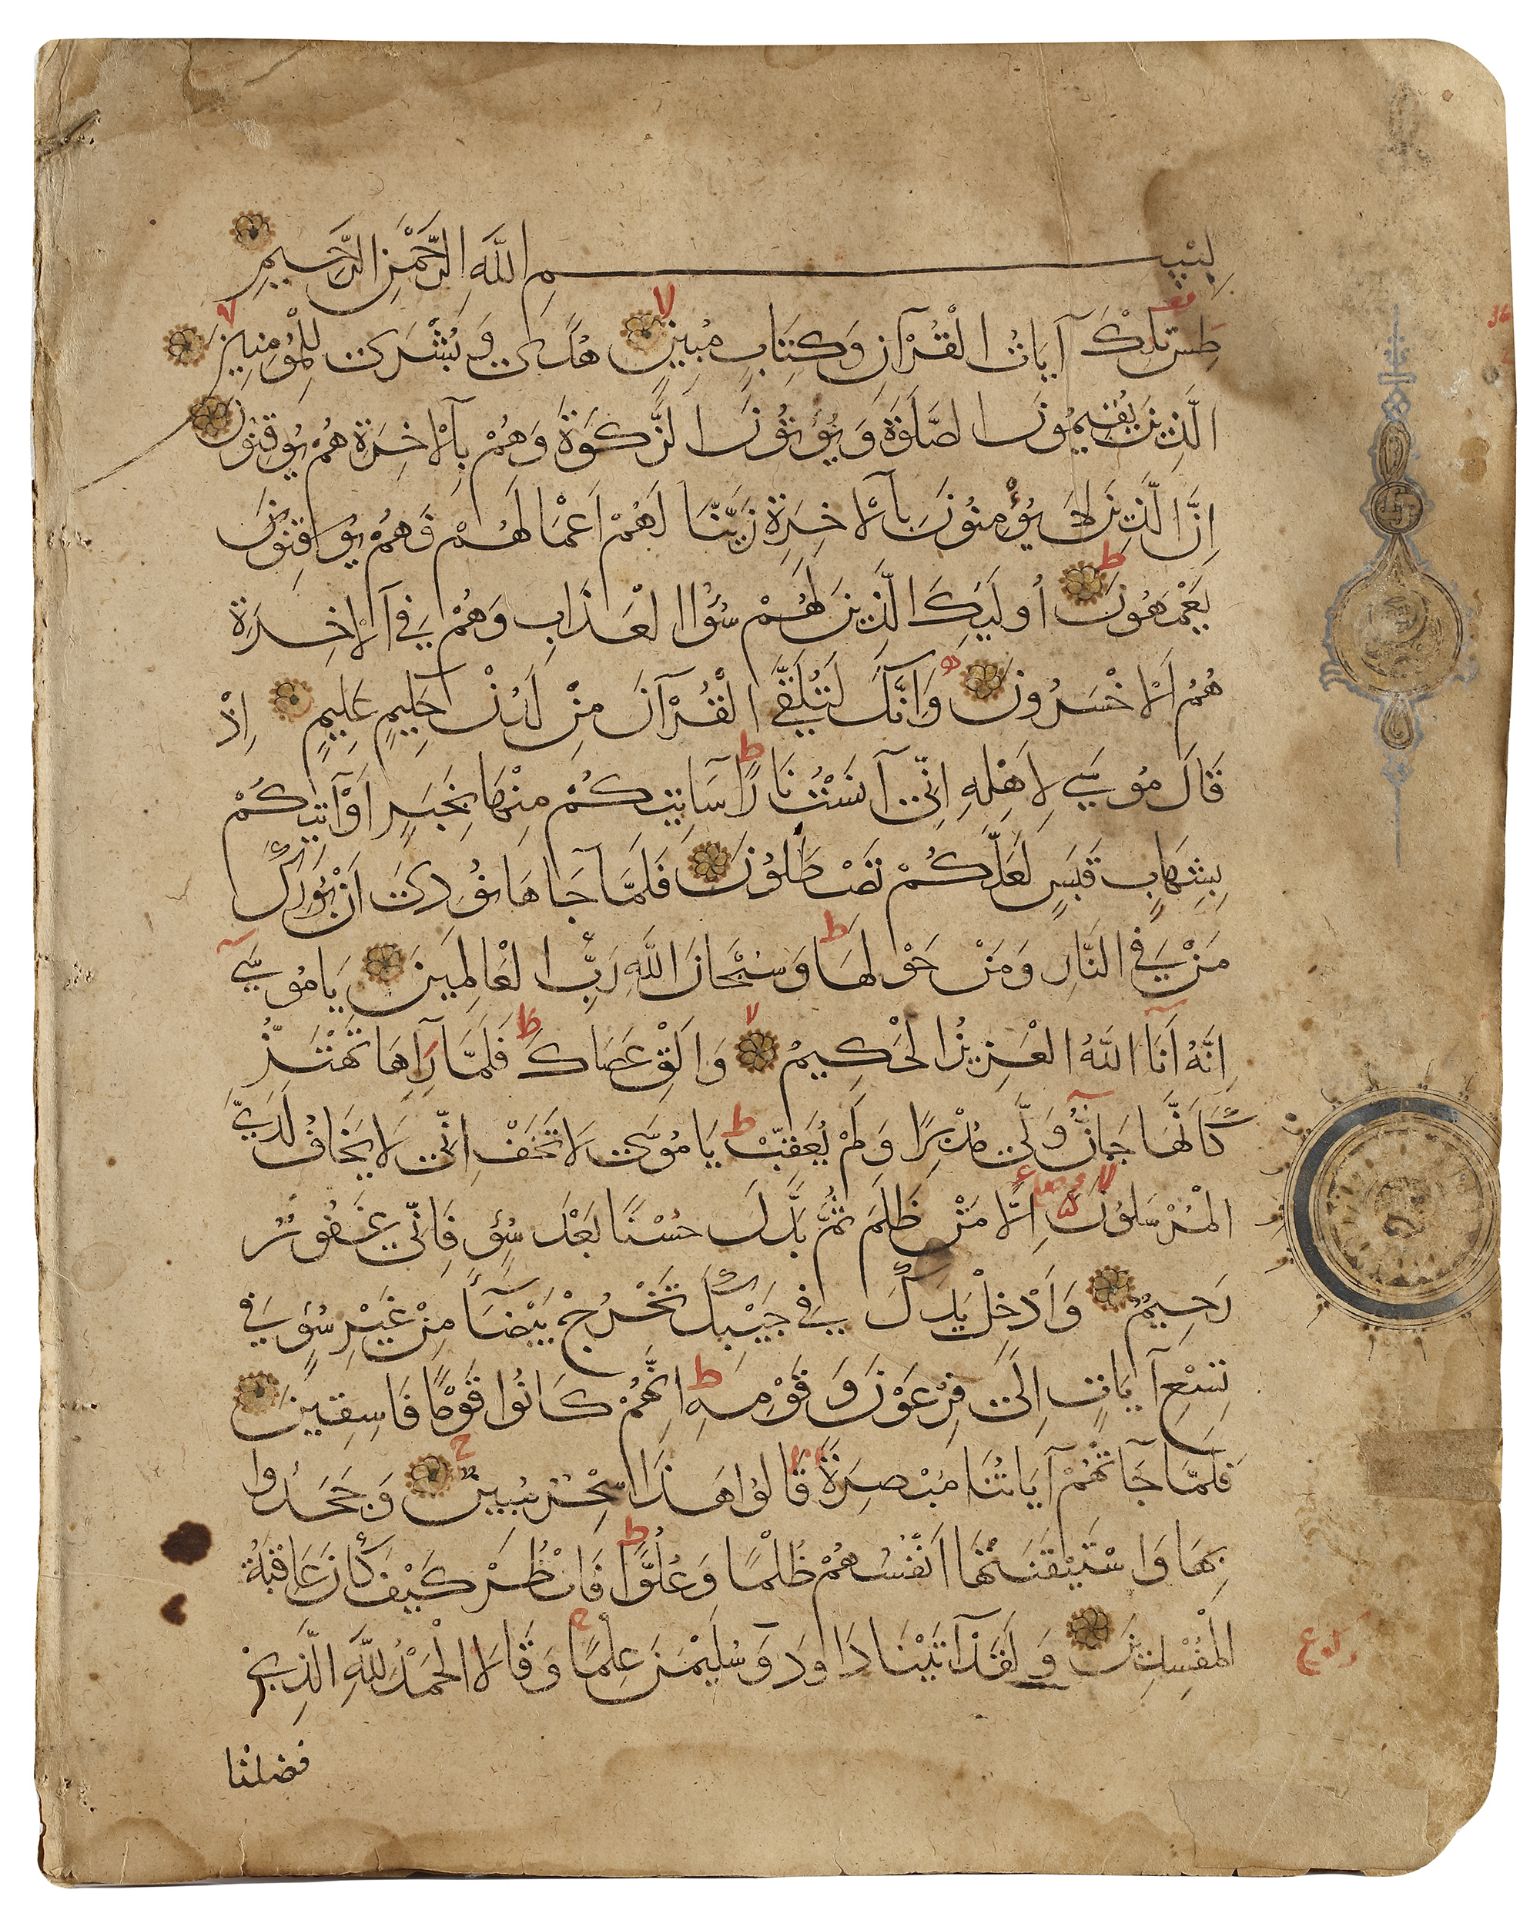 بِسْمِ اللَّهِ الرَّحْمَنِ الرَّحِيمِ
طس تِلْكَ آيَاتُ الْقُرْآنِ وَكِتَابٍ مُبِينٍ هُدًى وَبُشْرَى لِلْمُؤْمِنِينَ
الَّذِينَ يُقِيمُونَ الصَّلَوةَ وَيُؤْتُونَ الزَّكَوةَ وَهُمْ بِالْآخِرَةِ هُمْ يُوقِنُونَ
اِنَّ الَّذِينَ لَا يُؤْمِنُونَ بِالْآخِرَةِ زَيَّنَّا لَهُمْ اَعْمَالَهُمْ فَهُمْ يُوقِنُونَ
يَعْمَهُونَ أُولَئِكَ الَّذِينَ لَهُمْ سُوُٓا الْعَذَابِ وَهُمْ فِي الْآخِرَةِ
هُمُ الْاَخْسَرُونَ وَاِنَّكَ لَتُلَقَّى الْقُرْآنَ مِنْ لَدُنْ حَكِيمٍ عَلِيمٍ اِذْ
قَالَ مُوسَى لِاَهْلِهِ اِنِّي آنَسْتُ نَارًا سَآتِيكُمْ مِنْهَا بِخَبَرٍ اَوْ آتِيكُمْ
بِشِهَابٍ قَبَسٍ لَعَلَّكُمْ تَصْطَلُونَ فَلَمَّا جَآهَا نُودِيَ اَنْ بُورِكَ
مَنْ فِي النَّارِ وَمَنْ حَوْلَهَا وَسُبْحَانَ اللَّهِ رَبِّ الْعَالَمِينَ يَا مُوسَى
اِنَّهُ اَنَا اللَّهُ الْعَزِيزُ الْحَكِيمُ وَاَلْقِ عَصَاكَ فَلَمَّا رَآهَا تَهْتَزُّ
كَاَنَّهَا جَانٌّ وَلَّى مُدْبِرًا وَلَمْ يُعَقِّبْ يَا مُوسَى لَا تَخَفْ اِنِّي لَا يَخَافُ لَدَيَّ
الْمُرْسَلُونَ اِلَّا مَنْ ظَلَمَ ثُمَّ بَدَّلَ حُسْنًا بَعْدَ سُوءٍ فَاِنِّي غَفُورٌ
رَحِيمٌ وَاَدْخِلْ يَدَكَ فِي جَيْبِكَ تَخْرُجْ بَيْضَآءَ مِنْ غَيْرِ سُوءٍ فِي
تِسْعِ آيَاتٍ اِلَى فِرْعَوْنَ وَقَوْمِهِ اِنَّهُمْ كَانُوا قَوْمًا فَاسِقِينَ
فَلَمَّا جَآتْهُمْ آيَاتُنَا مُبْصِرَةً قَالُوا هَذَا سِحْرٌ مُبِينٌ وَجَحَدُوا
بِهَا وَاسْتَيْقَنَتْهَا اَنْفُسُهُمْ ظُلْمًا وَعُلُوًّا فَانْظُرْ كَيْفَ كَانَ عَاقِبَةُ
الْمُفْسِدِينَ وَلَقَدْ آتَيْنَا دَاوُدَ وَسُلَيْمَنَ عِلْمًا وَقَالَا الْحَمْدُ لِلَّهِ الَّذِي
فضلنا
ركوع